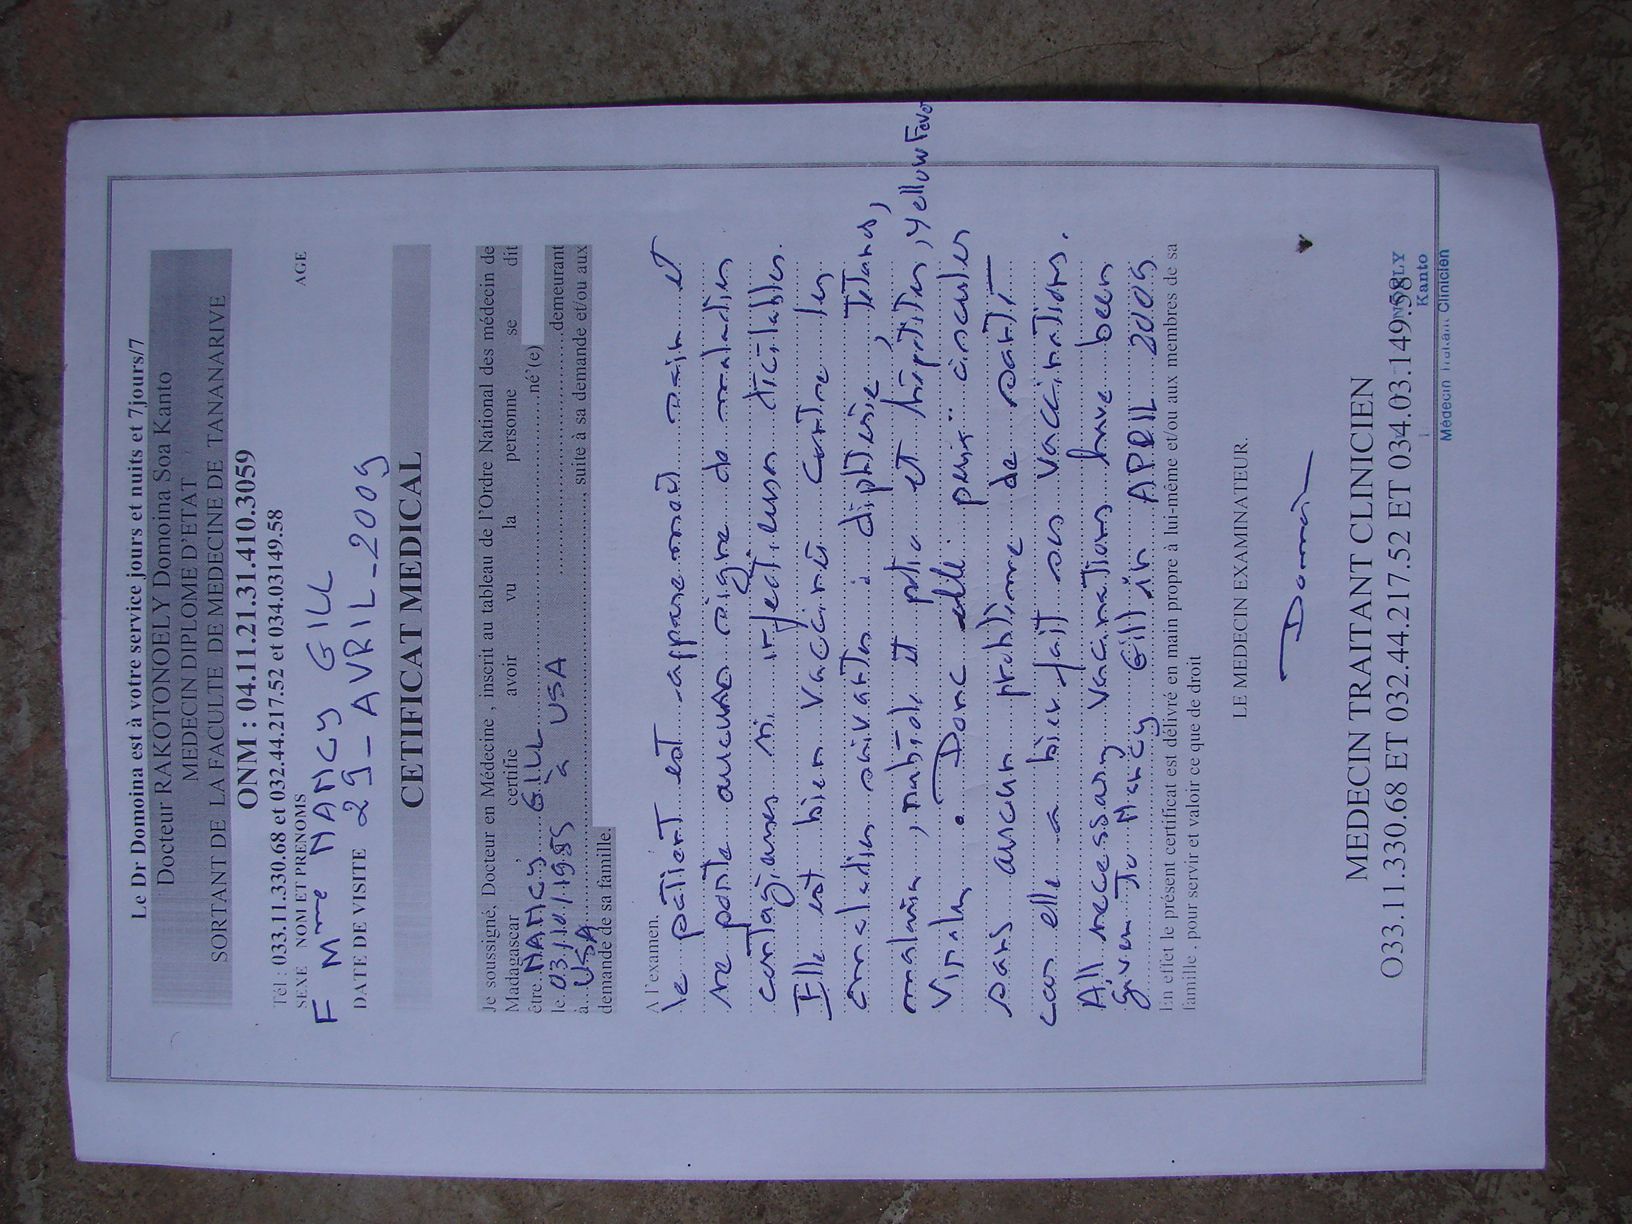 Le Dr Domoina est à votre service jours et nuits et 7jours/7
Docteur RAKOTONOELY Domoina Soa Kanto
MEDECIN DIPLOME D'ETAT
SORTANT DE LA FACULTE DE MEDECINE DE TANANARIVE
ONM : 04.11.21.31.410.3059
Tel : 033.11.330.68 et 032.44.217.52 et 034.03149.58
SEXE NOM ET PRENOMS AGE
F Mme NANCY GILL
DATE DE VISITE 29_AVRIL_2009
CETIFICAT MEDICAL
Je soussigné, Docteur en Médecine , inscrit au tableau de l'Ordre National des médecin de
Madagascar , certifie avoir vu la personne se dit
être NANCY GILL né'(e)
le 03/10/1985 à USA demeurant
à USA , suite à sa demande et/ou aux
demande de sa famille.
A l'examen.
le patient est apparemment sain et
ne porte aucun signe de maladies
contagieuses ni infectieuses décelables.
Elle est bien vaccinée contre les
maladies suivantes : diphtérie, tétanos,
malaria, rubéole et polio et hépatites, yellow Fever
Virales. Donc elle peut circuler
sans aucun problème de santé
car elle a bien fait ses vaccinations.
All necessary vaccinations have been
given to Nancy Gill in APRIL 2009
En effet le présent certificat est délivré en main propre à lui-même et/ou aux membres de sa
famille pour servir et valoir ce que de droit
LE MEDECIN EXAMINATEUR.
Domoin
MEDECIN TRAITANT CLINICIEN
O33.11.330.68 ET 032.44.217.52 ET 034.03.149.58
Kanto
Médecin Traitant Clinicien